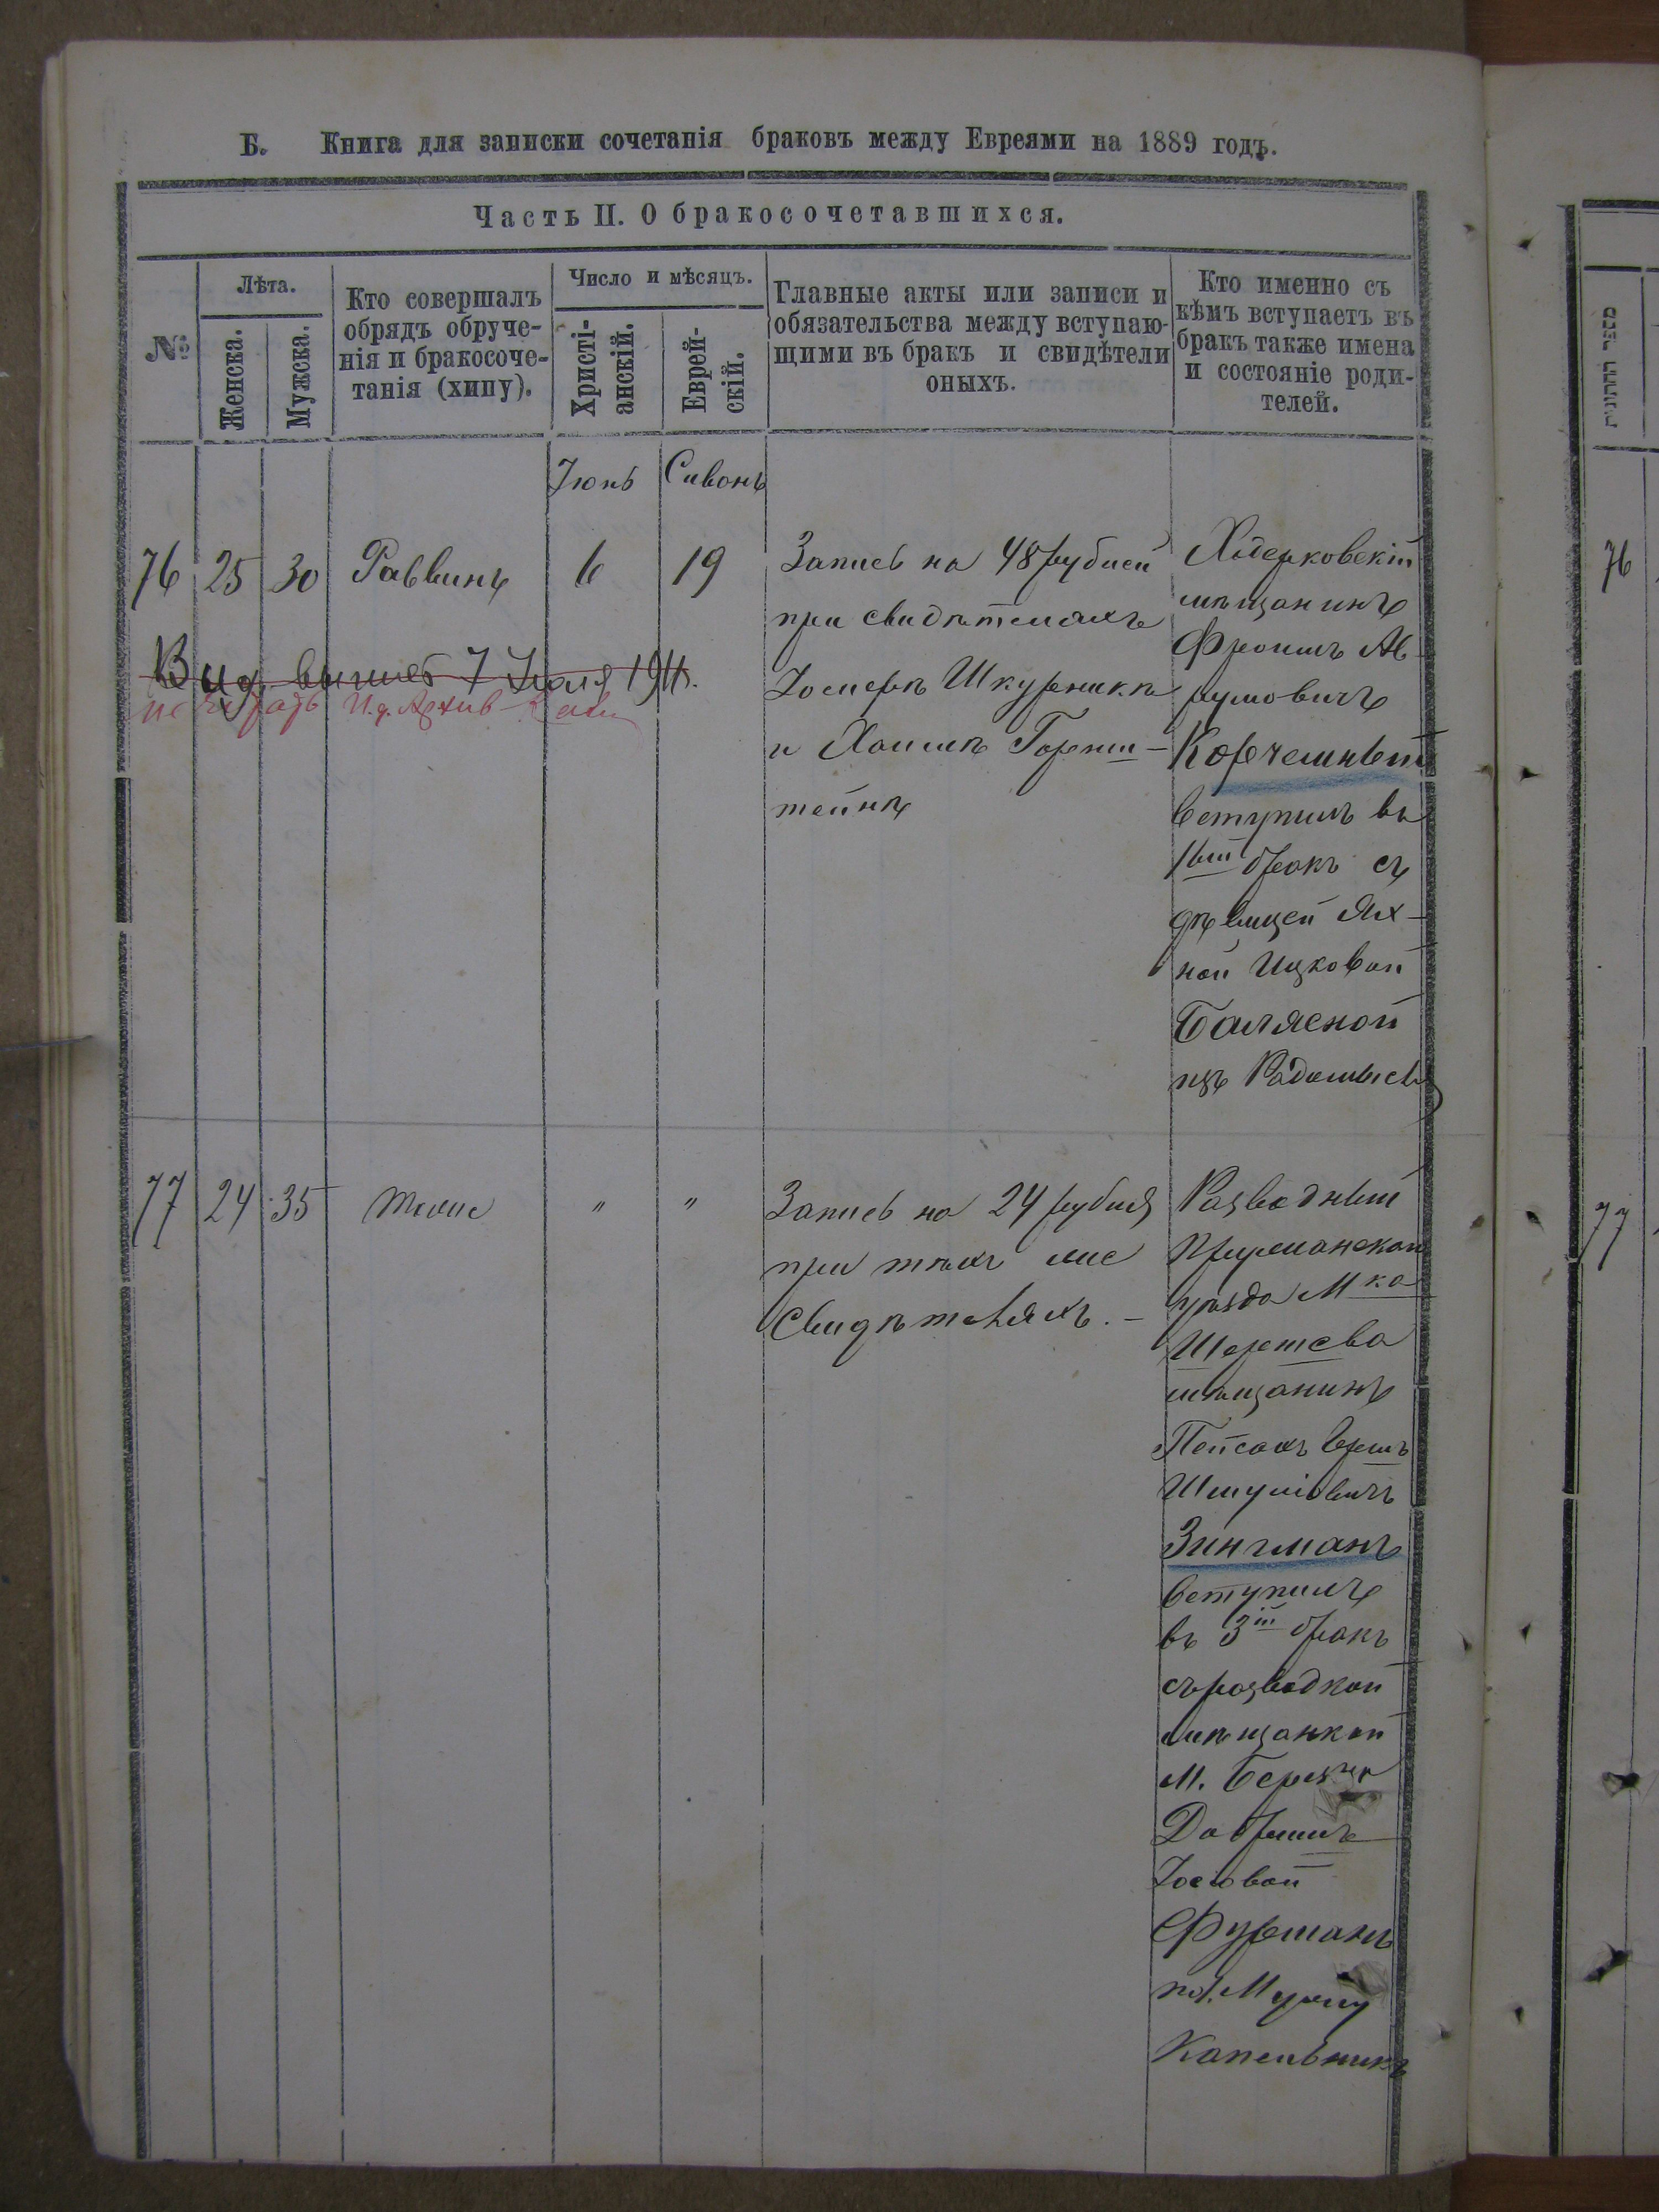 Б. Книга для записки сочетанія браковъ между Евреями на 1889 годъ.
Часть II. О бракосочетавшихся.
№
Лѣта.
Женска.
Мужска.
Кто совершалъ
обрядъ обруче-
нія и бракосоче-
танія (хипу).
Число и мѣсяцъ.
Христі-
анскій.
Еврей-
скій.
Главные акты или записи и
обязательства между вступаю-
щими въ бракъ и свидѣтели
оныхъ.
Кто именно съ
кѣмъ вступаетъ въ
бракъ также имена
и состояніе роди-
телей.
Іюнь Сивонъ
76 25 30 Раввинъ 6 19
Запись на 48 рублей
при свидѣтеляхъ
Іосифѣ Шкурникѣ
и Хаимѣ Горенш-
тейнѣ
Ходорковскій
мѣщанинъ
Фроимъ Ав-
румовичъ
Корчемный
вступилъ въ
1ый бракъ съ
дѣвицей Ях-
ной Ицковой
Балясной
изъ Радомысля
Выд. выпись 7 Іюля 1911.
77 24 35 тоже " "
Запись на 24 рубля
при тѣхъ же
свидѣтеляхъ. —
Разводный
Пружанскаго
уѣзда М-ка
Шерешева
мѣщанинъ
Пейсахъ Гершъ
Шмулiовичъ
Зингманъ
вступилъ
въ 3й бракъ
съ разводкой
мѣщанкой
М.
Добришъ
Іосіовой
Фурманъ
по М мужу
Капельникъ
מספר החתונות
76
77